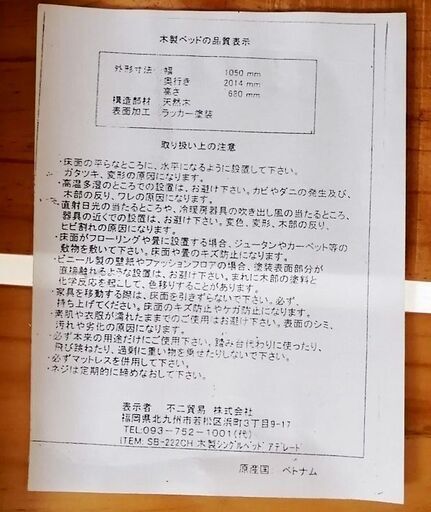 木製ベッドの品質表示
外形寸法: 幅 1050 mm
奥行き 2014 mm
高さ 680 mm
構造部材 天然木
表面加工 ラッカー塗装
取り扱い上の注意
・床面の平らなところに、水平になるように設置して下さい。
ガタツキ、変形の原因になります。
・高温多湿のところでの設置は、お避け下さい。カビやダニの発生及び、
木部の反り、ワレの原因になります。
・直射日光の当たるところや、冷暖房器具の吹き出し風の当たるところ、
器具の近くでの設置は、お避け下さい。変色、変形、木部の反り、
ヒビ割れの原因になります。
・床面がフローリングや畳に設置する場合、ジュータンやカーペット等の
敷物を敷いて下さい。床面や畳のキズ防止になります。
・ビニール製の壁紙やファッションフロアの場合、塗装表面部分が
直接触れるような設置は、お避け下さい。まれに木部の塗料と
化学反応を起こして、色移りすることがあります。
・家具を移動する際は、床面を引きずらないで下さい。必ず、
持ち上げてください。床面のキズ防止やケガ防止になります。
・素肌や衣服が濡れたままでのご使用はお避け下さい。表面のシミ、
汚れや劣化の原因になります。
・必ず本来の用途だけにご使用下さい。踏み台代わりに使ったり、
飛び跳ねたり、過剰に重い物を乗せたりしないで下さい。
・必ずマットレスを併用して下さい。
・ネジは定期的に締めなおして下さい。
表示者 不二貿易 株式会社
福岡県北九州市若松区浜町3丁目9-17
TEL:093-752-1001(代)
ITEM: SB-222CH 木製シングルベッド アデレート
原産国 ベトナム